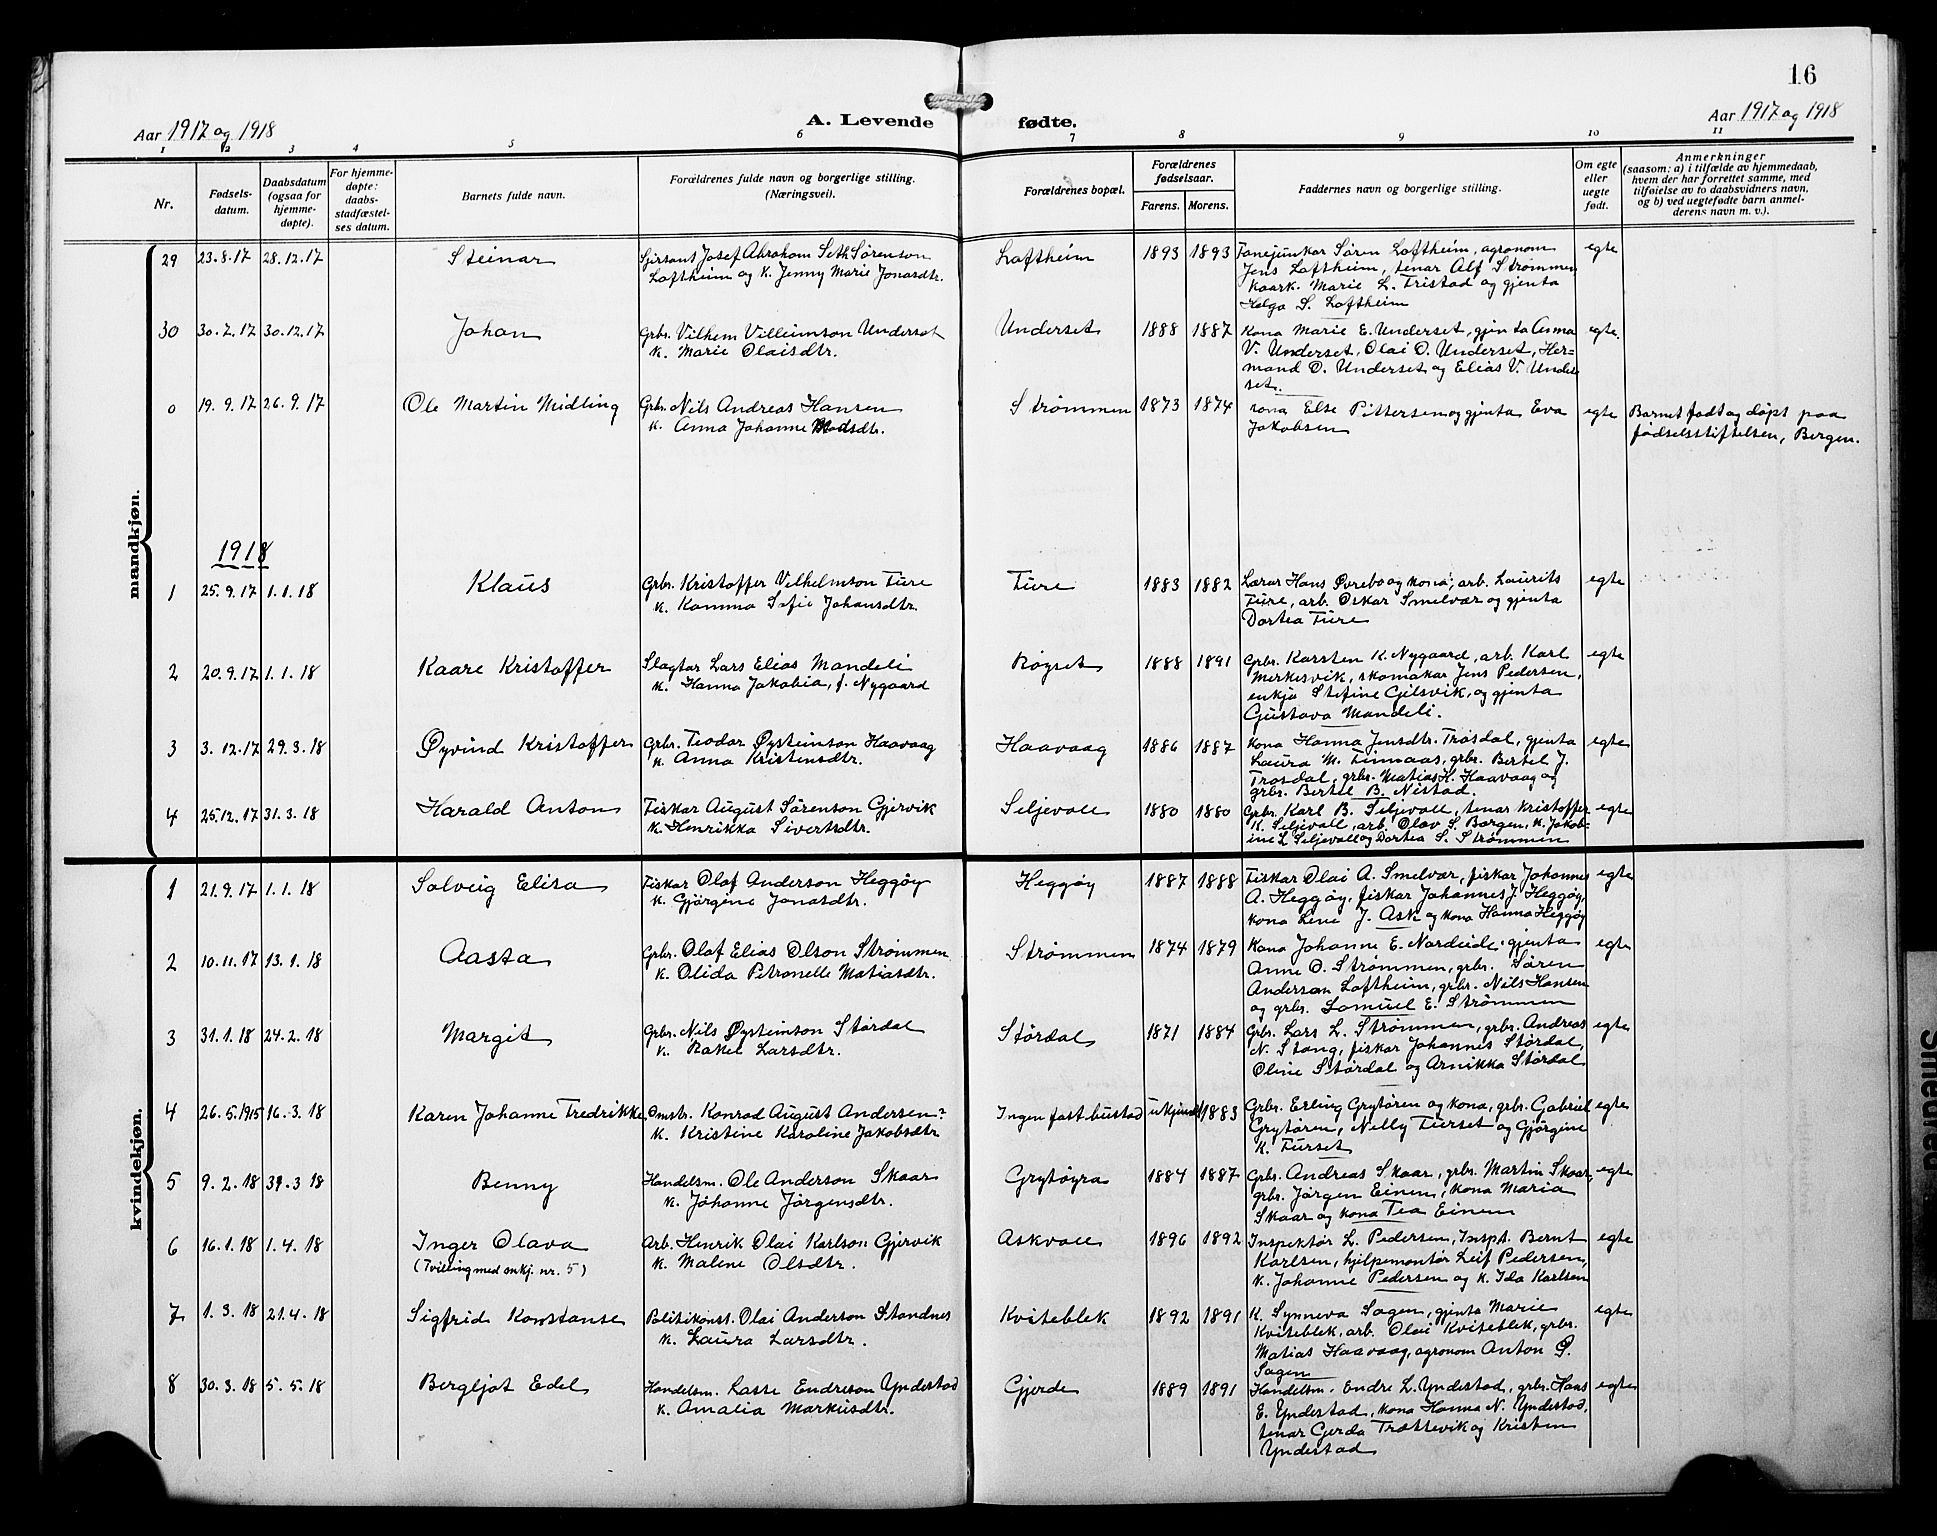 16
Aar 1917 og 1918
A. Levende fødte.
Aar 1917 og 1918
1 2 3 4 5 6 7 8 9 10 11
Nr.
Fødsels-
datum.
Daabsdatum
(ogsaa for
hjemme-
døpte).
For hjemme-
døpte:
daabs-
stadfæstel-
ses datum.
Barnets fulde navn.
Forældrenes fulde navn og borgerlige stilling.
(Næringsvei).
Forældrenes bopæl.
Forældrenes
fødselsaar.
Farens. Morens.
Faddernes navn og borgerlige stilling.
Om egte
eller
uegte
født.
Anmerkninger
(saasom: a) i tilfælde av hjemmedaab,
hvem der har forrettet samme, med
tilføielse av to daabsvidners navn,
og b) ved uegtefødte barn anmel-
derens navn m. v.).
mandkjøn.
29 23.8.17 28.12.17 Steinar
Josef Abraham Seth Sørenson
Loftheim og K. Jenny Marie Jonasdtr.
Loftheim 1893 1893
Fanejunkar Søren Loftheim, agronom
Jens Loftheim, tenar Alf Strømmen
Kaark. Marie L. Tristad og gjenta
Helga S. Loftheim
egte
30 30.7.17 30.12.17 Johan
Grbr. Vilhem Villeimson Underset
K. Marie Olaisdtr.
Underset 1888 1887
Kona Marie E. Underset, gjenta Anna
V. Underset, Olai O. Underset, Her=
mand O. Underset og Elias V. Under
set.
egte.
0 19.9.17 26.9.17 Ole Martin Midling
Grbr. Nils Andreas Hansen
K. Anna Johanne Madsdtr.
Strømmen 1873 1874
Kona Else Pittersen og gjenta Eva
Jakobsen
egte
Barnet født og døpt paa
fødselsstiftelsen, Bergen.
1918
1 25.9.17 1.1.18 Klaus
Grbr. Kristoffer Vilhelmson Ture
K. Kamma Sofie Johansdtr.
Ture 1883 1882
Lærar Hans Øvrebo og kona, arb. Laurits
Ture, arb. Oskar Smelvær og gjenta
Dortea Ture
egte
2 20.9.17 1.1.18 Kaare Kristoffer
Slagtar Lars Elias Mandeli
K. Hanna Jakobia, f. Nygaard
Røyset 1888 1891
Grbr. Karsten K. Nygaard, arb. Karl
Merkesvik, skomakar Jens Pedersen,
enkja Stefine Gilsvik, og gjenta
Gustava Mandeli.
egte
3 3.12.17 29.3.18 Øyvind Kristoffer
Grbr. Teodor Øysteinson Haavaag
K. Anna Kristensdtr.
Haavaag 1886 1887
Kona Hanna Jensdtr. Trosdal, gjenta
Laura M. Timaas, grbr. Bertel J.
Trosdal, grbr. Matias H. Haavaag og
grbr. Bertel B. Nistad.
egte
4 25.12.17 31.3.18 Harald Anton
Fiskar August Sørenson Gjervik
K. Henrikka Sivertsdtr.
Seljevoll 1880 1880
Grbr. Karl B. Seljevoll, tenar Kristoffer
K. Seljevoll, arb. Olav S. Borgen, K. Jakob=
ine L Seljevoll og Dortea S. Strømmen
egte
kvindekjøn.
1 21.9.17 1.1.18 Solveig Elisa
Fiskar Olaf Anderson Heggøy
K. Gjørgine Jonasdtr.
Heggøy 1887 1888
Fiskar Olai A. Smelvær, fiskar Johannes
A. Heggøy, fiskar Johannes J. Heggøy,
kona Line J. Ask og kona Hanna Heggøy
egte
2 10.11.17 13.1.18 Aasta
Grbr. Olaf Elias Olson Strømmen
K. Olida Petronelle Matiasdtr.
Strømmen 1874 1879
Kona Johanne E. Nordeide, gjenta
Anne O. Strømmen, grbr. Søren
Anderson Loftheim, grbr. Nils Hansen
og grbr. Samuel E. Strømmen
egte
3 31.1.18 24.2.18 Margit
Grbr. Nils Øysteinson Størdal
K. Rakel Larsdtr.
Størdal 1871 1884
Grbr. Lars L. Strømmen, grbr. Andreas
N. Stang, fiskar Johannes Størdal,
Oline Størdal og Arnikka Størdal
egte
4 26.5.1915 16.3.18 Karen Johanne Fredrikke
Omstr. Konrad August Andersen?
K. Kristine Karoline Jakobsdtr
Ingen fast bustad ukjendt 1883
Grbr. Erling Grytøren og kona, grbr. Gabriel
Grytøren, Nelly Furset og Gjørgine
K. Furset
egte
5 9.2.18 31.3 18 Benny
Handelsm. Ole Anderson Skaar
K. Johanne Jørgensdtr.
Grytøyra 1884 1887
Grbr. Andreas Skaar, grbr. Martin Skaar,
grbr. Jørgen Einem, kona Maria
Skaar og kona Tea Einem
egte
6 16.1.18 1.4.18 Inger Olava
(Tvilling med mkj. nr. 5)
Arb. Henrik Olai Karlson Gjervik
K. Malene Olsdtr.
Askvoll 1896 1892
Inspektør L. Pedersen, Inspt. Bernt
Karlsen, hjelpemontør Leif Pedersen,
K. Johanne Pedersen og K. Ida Karlsen
egte
7 1.3.18 21.4.18 Sigfrid Konstanse
Politikonst. Olai Anderson Standnes
K. Laura Larsdtr.
Kviteblek 1892 1891
K. Synneva Sagen, gjenta Marie
Kviteblek, arb. Olai Kviteblek, grbr.
Matias Haavaag, agronom Anton P.
Sagen
egte
8 30.3.18 5.5.18 Bergljot Edel
Handelsm. Lasse Endreson Yndestad
K. Amalia Markusdtr.
Gjerde 1889 1891
Handelsm. Endre L. Yndestad, grbr. Hans
E. Yndestad, kona Hanna N. Yndestad,
tenar Gjerda Trættevik og Kristen
Yndestad
egte